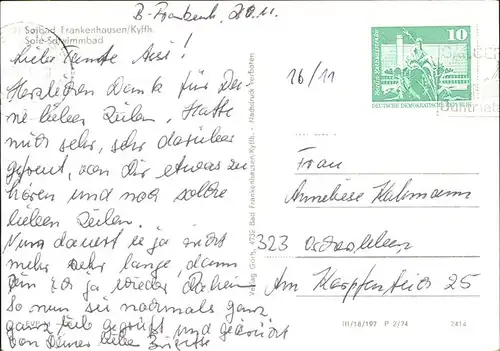 B-Frankenh. 20.11.
Solbad Frankenhausen/Kyffh.
Sole-Schwimmbad
Liebe Tante Anni!
Herzlichen Dank für Dei-
ne lieben Zeilen. Hatte
mich sehr, sehr darüber
gefreut, von Dir etwas zu
hören und noch solche
lieben Zeilen.
Nun dauert es ja nicht
mehr sehr lange, dann
bin ich ja wieder daheim
So nun sei nochmals ganz
ganz lieb gegrüßt und geküßt
von Deiner
Verlag Görth, 4732 Bad Frankenhausen/Kyffh. - Nachdruck verboten
16/11
10
DEUTSCHE DEMOKRATISCHE REPUBLIK
Frau
Anneliese Hahmann
323 Oschersleben
Am Karpfenteich 25
III/18/197 P 2/74 2414